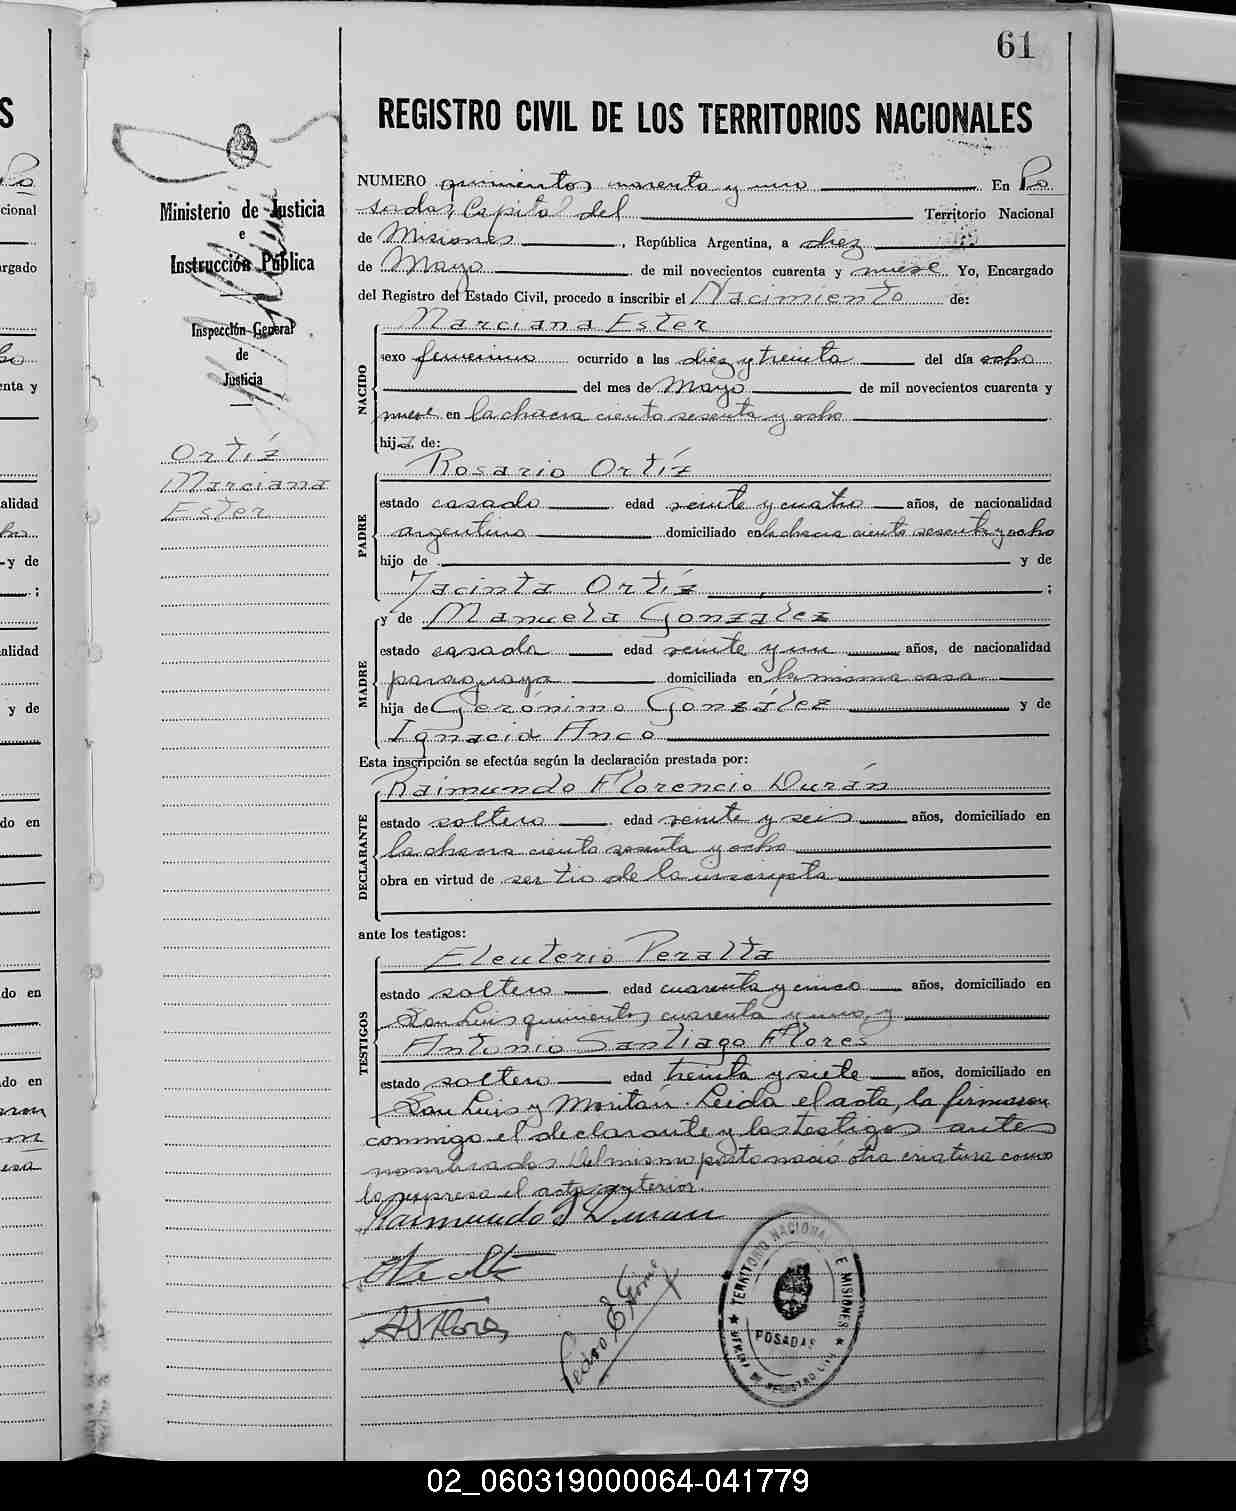 61
REGISTRO CIVIL DE LOS TERRITORIOS NACIONALES
Ministerio de Justicia
e
Instrucción Pública
Inspección General
de
Justicia
Ortíz
Marciana
Ester
NUMERO quinientos cuarenta y uno En Po
sadas, Capital del Territorio Nacional
de Misiones, República Argentina, a diez
de Mayo de mil novecientos cuarenta y nueve Yo, Encargado
del Registro del Estado Civil, procedo a inscribir el Nacimiento de:
NACIDO
Marciana Ester
sexo femenino ocurrido a las diez y treinta del día ocho
del mes de Mayo de mil novecientos cuarenta y
nueve en la chacra ciento sesenta y ocho
hija de:
PADRE
Rosario Ortíz
estado casado edad veinte y cuatro años, de nacionalidad
argentino domiciliado en la chacra ciento sesenta y ocho
hijo de y de
Jacinta Ortíz ;
MADRE
y de Manuela González
estado casada edad veinte y un años, de nacionalidad
paraguaya domiciliada en la misma casa
hija de Gerónimo González y de
Ignacia Anco
Esta inscripción se efectúa según la declaración prestada por:
DECLARANTE
Raimundo Florencio Durán
estado soltero edad veinte y seis años, domiciliado en
la chacra ciento sesenta y ocho
obra en virtud de ser tio de la inscripta
ante los testigos:
TESTIGOS
Eleuterio Peralta
estado soltero edad cuarenta y cinco años, domiciliado en
San Luis quinientos cuarenta y uno, y
Antonio Santiago Flores
estado soltero edad treinta y siete años, domiciliado en
San Luis y Moritán. Leida el acta, la firmaron
conmigo el declarante y los testigos antes
nombrados. Del mismo parto nació otra criatura como
lo expresa el acta anterior.
Raimundo F Duran
ASFlores
Pedro E Gime
TERRITORIO NACIONAL DE MISIONES
POSADAS
02_060319000064-041779